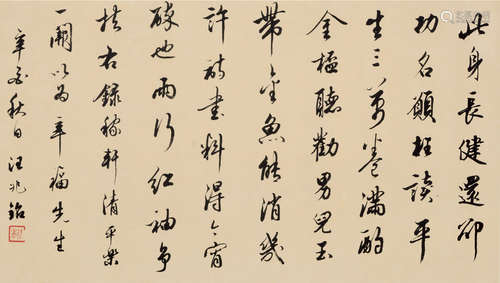 此身長健還卻
功名願枉讀平
生三萬卷滿酌
金桮聽勸男兒玉
帶金魚能消幾
許詩書料得今宵
醉也兩行紅袖爭
扶右錄稼軒清平樂
一闋以為辛福先生
辛秋日汪兆銘